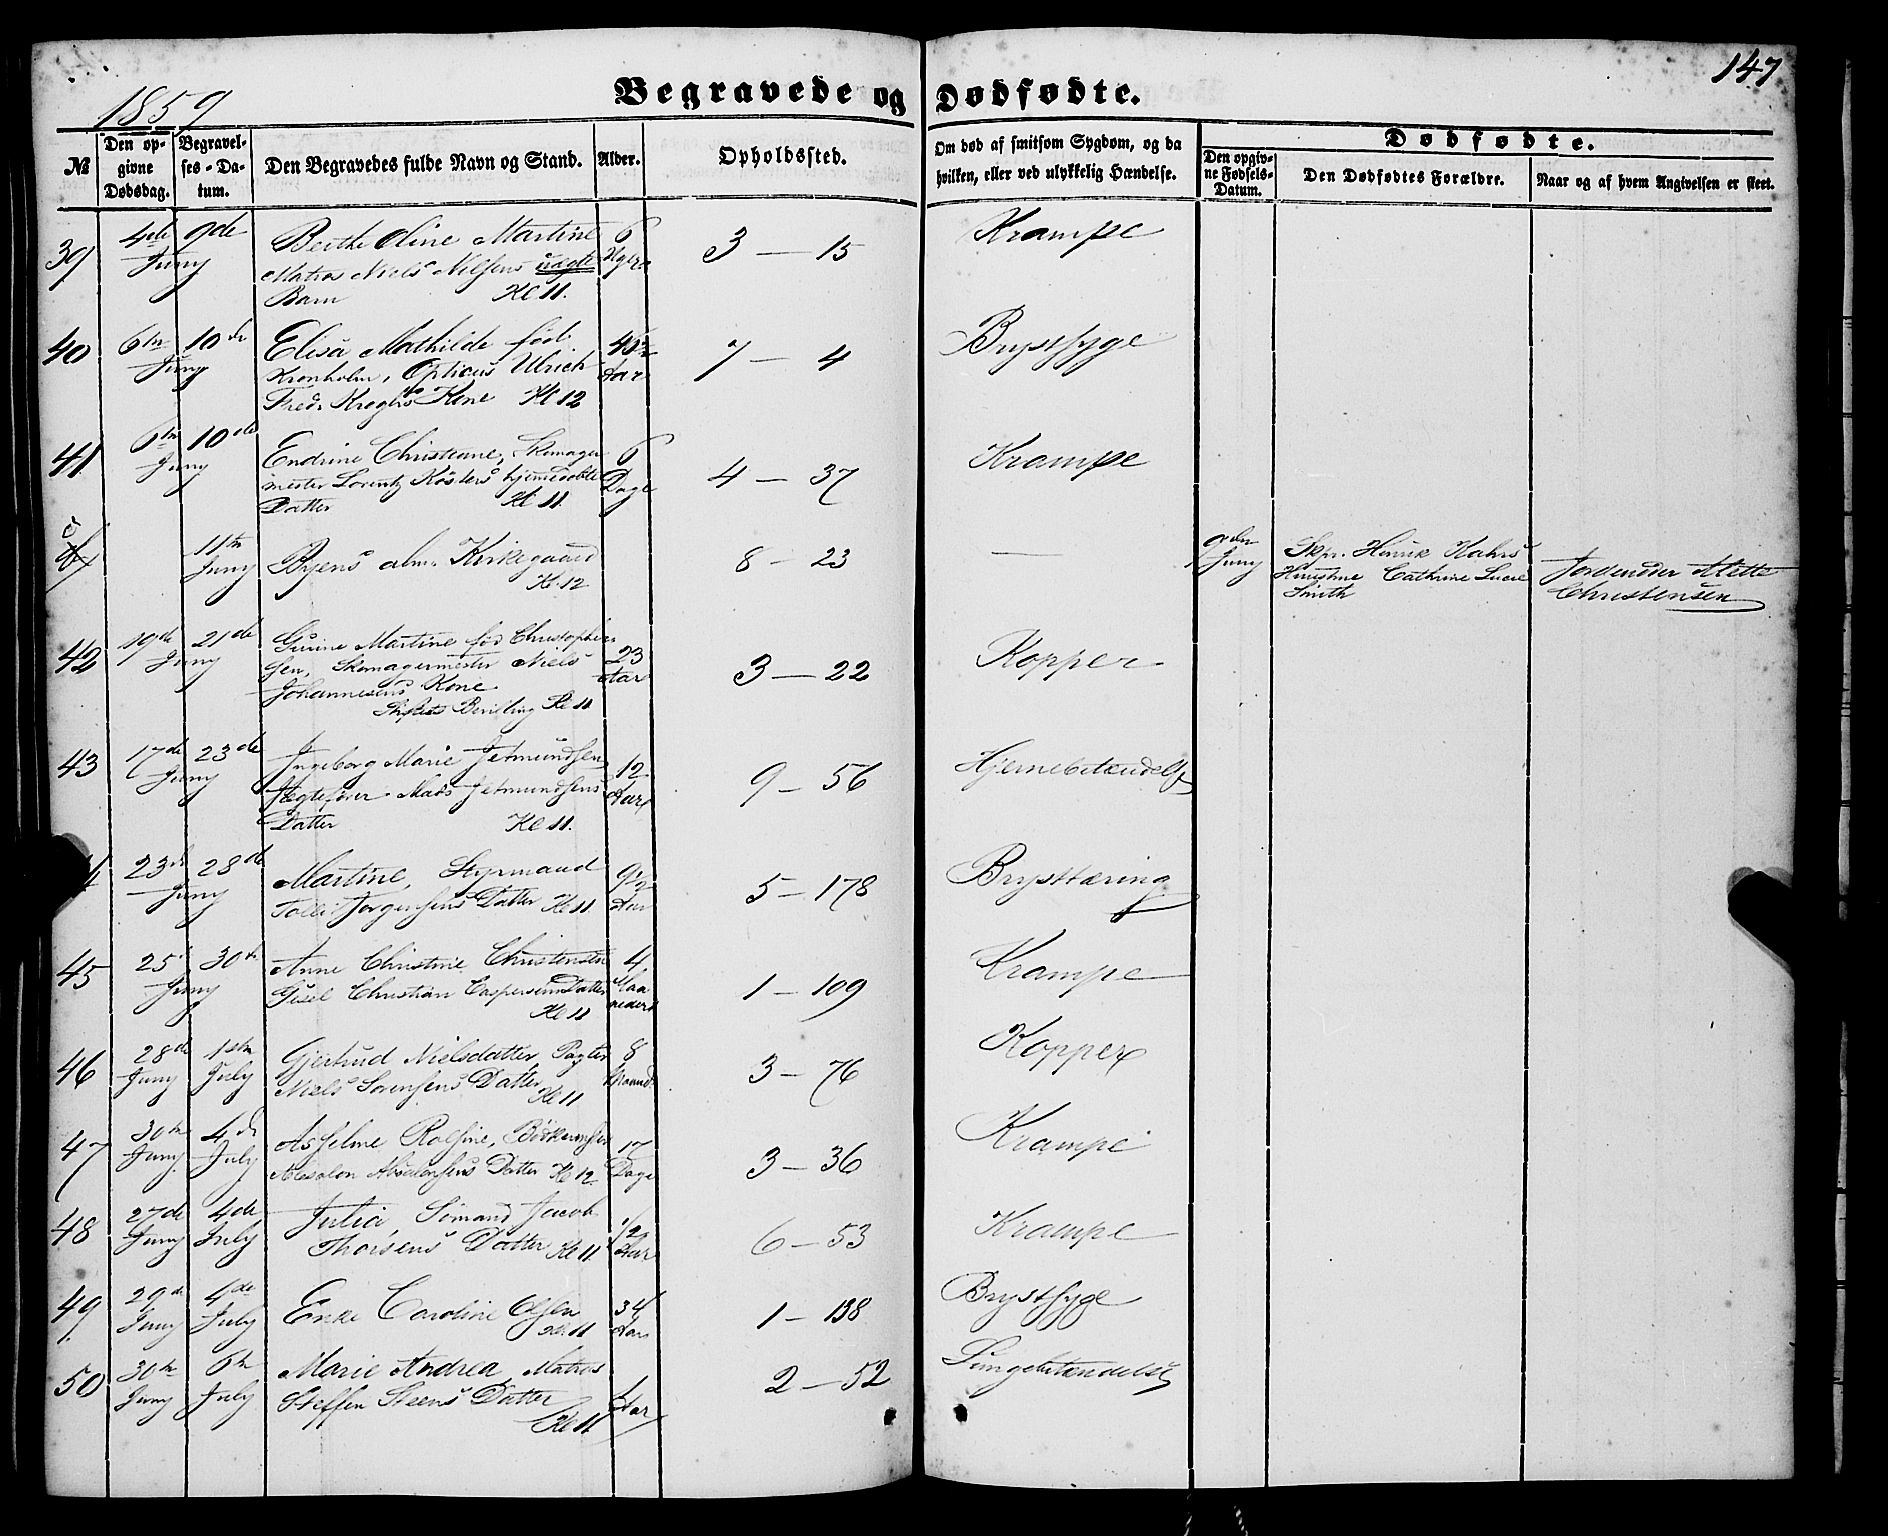 1859
147
Begravede og Dødfødte.
№
Den opgivne Dødsdag.
Begravelses-Datum.
Den Begravedes fulde Navn og Stand.
Alder.
Opholdssted.
Om død af smitsom Sygdom, og da hvilken, eller ved ulykkelig Hændelse.
Dødfødte.
Den opgivne Fødsels-Datum.
Den Dødfødtes Forældre.
Naar og af hvem Angivelsen er skeet.
39 4de 9de Berthe Oline Martine 6 3 — 15 Krampe
Juny Matros Niels Nielsens uægte Uger
Barn Kl 11.
40 6te 10de Elisa Mathilde fød 45½ 7 — 4 Brystsyge
Juny Kronholm, Opticus Ulrich Aar
Fredr Krogers Kone Kl 12
41 6te 10de Endrine Christiane, Skomager 6 4 — 37 Krampe
Juny mester Lorentz Kösters hjemmedøbte Dage
Datter Kl 11.
11te Juny Byens alm. Kirkegaard 8 — 23 — 9de Juny Skpr. Hinrik Kahrs
Kl. 12 Christine Cathrine Lucie Jordemoder Mette
Smith Christensen
42 19de 21de Martine fød Christophersen 23 3 — 22 Kopper
Juny Skomagermester Niels Aar
Johannesens Kone
Bevilling Kl 11
43 17de 23de Ingeborg Marie Jetmundsen 12 9 — 56 Hjernebetændelse
Juny Mads Jetmundsens Aar
Datter Kl 11.
23de 28de Martine, Styrmand 9½ 5 — 178 Brysttæring
Juny Jørgensens Datter Kl 11 Aar
45 25de 30te Anne Christine Christensen 4 1 — 109 Krampe
Juny Christian Caspersens Datter Maaneder
Kl 11
46 28de 1ste Gjertrud Nielsdatter, 8 3 — 76 Kopper
Juny July Niels Sørensens Datter Maaned
Kl 11
47 30te 4de Rolfine, 17 3 — 36 Krampe
Juny July Absalon Absalonsens Datter Kl 12 Dage
48 27de 4de Julia, Sømand Jacob ½ 6 — 53 Krampe
Juny July Thorsens Datter Kl 11 Aar
49 29de 4de Enke Caroline Olsen 34 1 — 138 Brystsyge
Juny July Kl 11 Aar
50 30te 6te Marie Andrea Matros 1 2 — 52 Lungebetændelse
Juny July Steffen Steens Datter Aar
Kl 11